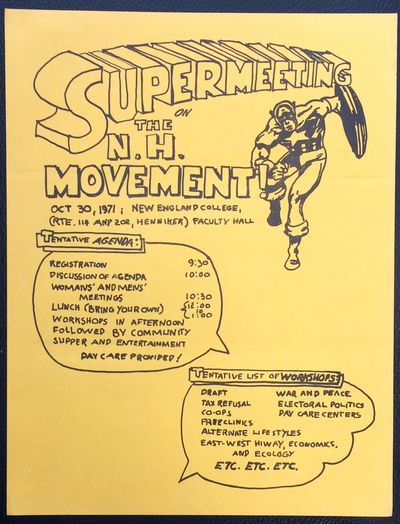 SUPERMEETING
ON
THE
N.H.
MOVEMENT!
OCT 30, 1971; NEW ENGLAND COLLEGE,
(RTE. 114 AND 202, HENNIKER) FACULTY HALL
TENTATIVE AGENDA:
REGISTRATION 9:30
DISCUSSION OF AGENDA 10:00
WOMANS' AND MENS'
MEETINGS 10:30
LUNCH (BRING YOUR OWN) {12:00 to 1:00
WORKSHOPS IN AFTERNOON
FOLLOWED BY COMMUNITY
SUPPER AND ENTERTAINMENT
DAY CARE PROVIDED!
TENTATIVE LIST OF WORKSHOPS:
DRAFT WAR AND PEACE
TAX REFUSAL ELECTORAL POLITICS
CO-OPS DAY CARE CENTERS
FREECLINICS
ALTERNATE LIFESTYLES
EAST-WEST HIWAY, ECONOMICS,
AND ECOLOGY
ETC. ETC. ETC.